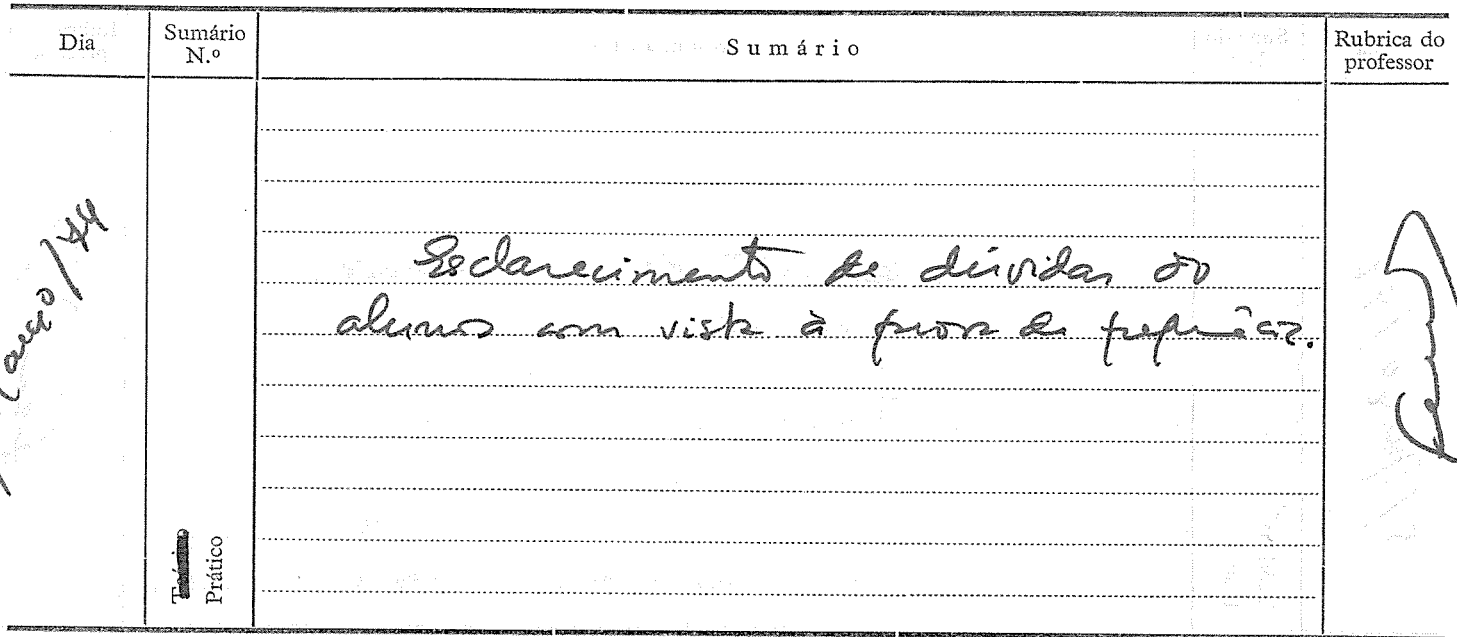 Dia
Sumário N.º
Sumário
Rubrica do professor
Março/74
Esclarecimento de dúvidas do
alunos com vista à prova de frequência.
Teórico
Prático